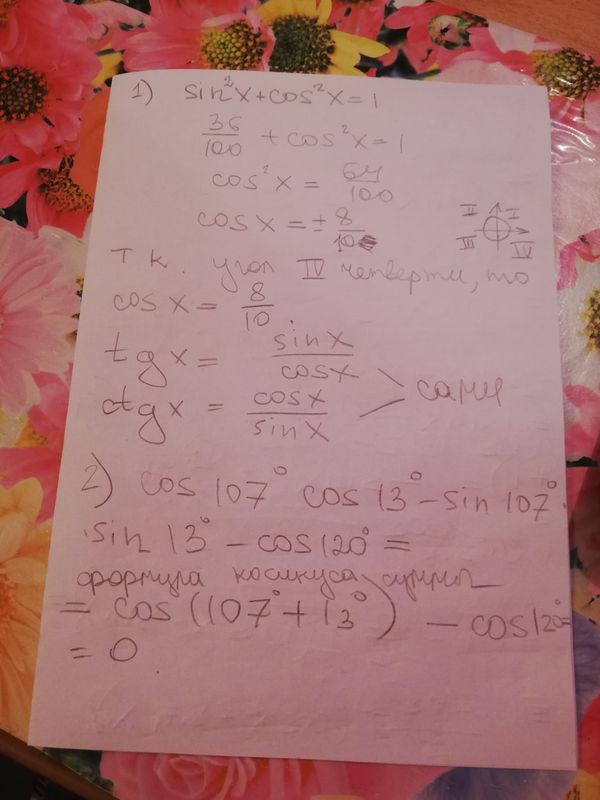 1) sin²x+cos²x=1
36/100 + cos²x=1
cos²x = 64/100
cosx=± 8/10
II I
III IV
Т.К. угол IV четверти, то
cosx= 8/10.
tgx= sinx/cosx
ctgx = cosx/sinx > сами
2) cos107° cos13°-sin107°·
·sin13°-cos120°=
формула косинуса суммы
= cos(107°+13°) - cos120°=
= 0